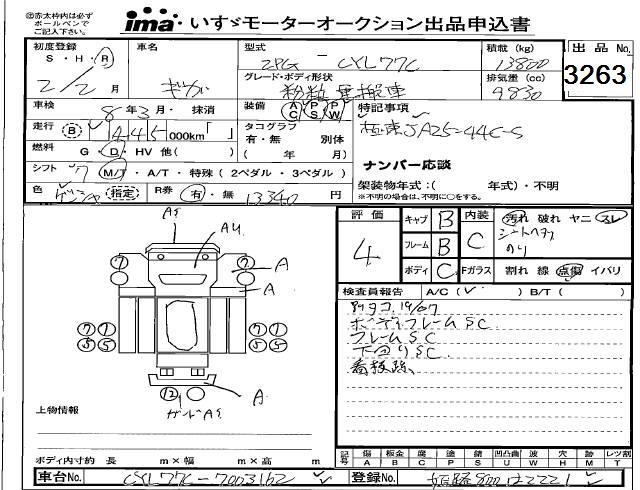 ㊟赤太枠内は必ず
ボールペンで
ご記入下さい。
ima いすゞモーターオークション出品申込書
初度登録
S・H・R
2/2月
車名
ギガ
型式
2PG - CYL77C
積載(kg)
13800
グレード・ボディ形状
粉粒運搬車
排気量(cc)
9830
出品No.
3263
車検
8年3月・抹消
装備
AC PS PW
特記事項
極東JA25-44C-S
走行
445000km「 」
タコグラフ
有・無 別体
( 年 月)
燃料
G・D・HV 他( )
ナンバー応談
シフト
7 M/T・A/T・特殊(2ペダル・3ペダル)
架装物年式:( 年式)・不明
※の場合は、不明に○をする。
色
指定
R券
有・無 13340円
評価
4
キャブ B
フレーム B
ボディ C
内装
C
汚れ 破れ ヤニ スレ
シートヘタリ
のり
Fガラス 割れ 線 点傷 イバリ
検査員報告 A/C( ) B/T( )
19/07
ボディフレームSC
フレームSC
下回りSC
看板跡
Aᵋ
AU
⑦ ⑦ A
A
⑦① ⑦①
⑤⑤ ⑤⑤
⑫ A
上物情報
ボディ内寸約 長 m×幅 m×高 m
記号 傷A 板金B 腐C 塗P 錆S 凹凸曲U 破W 穴H 跡M レツ割T
車台No. CYL77C-7003162
登録No. 姫路800